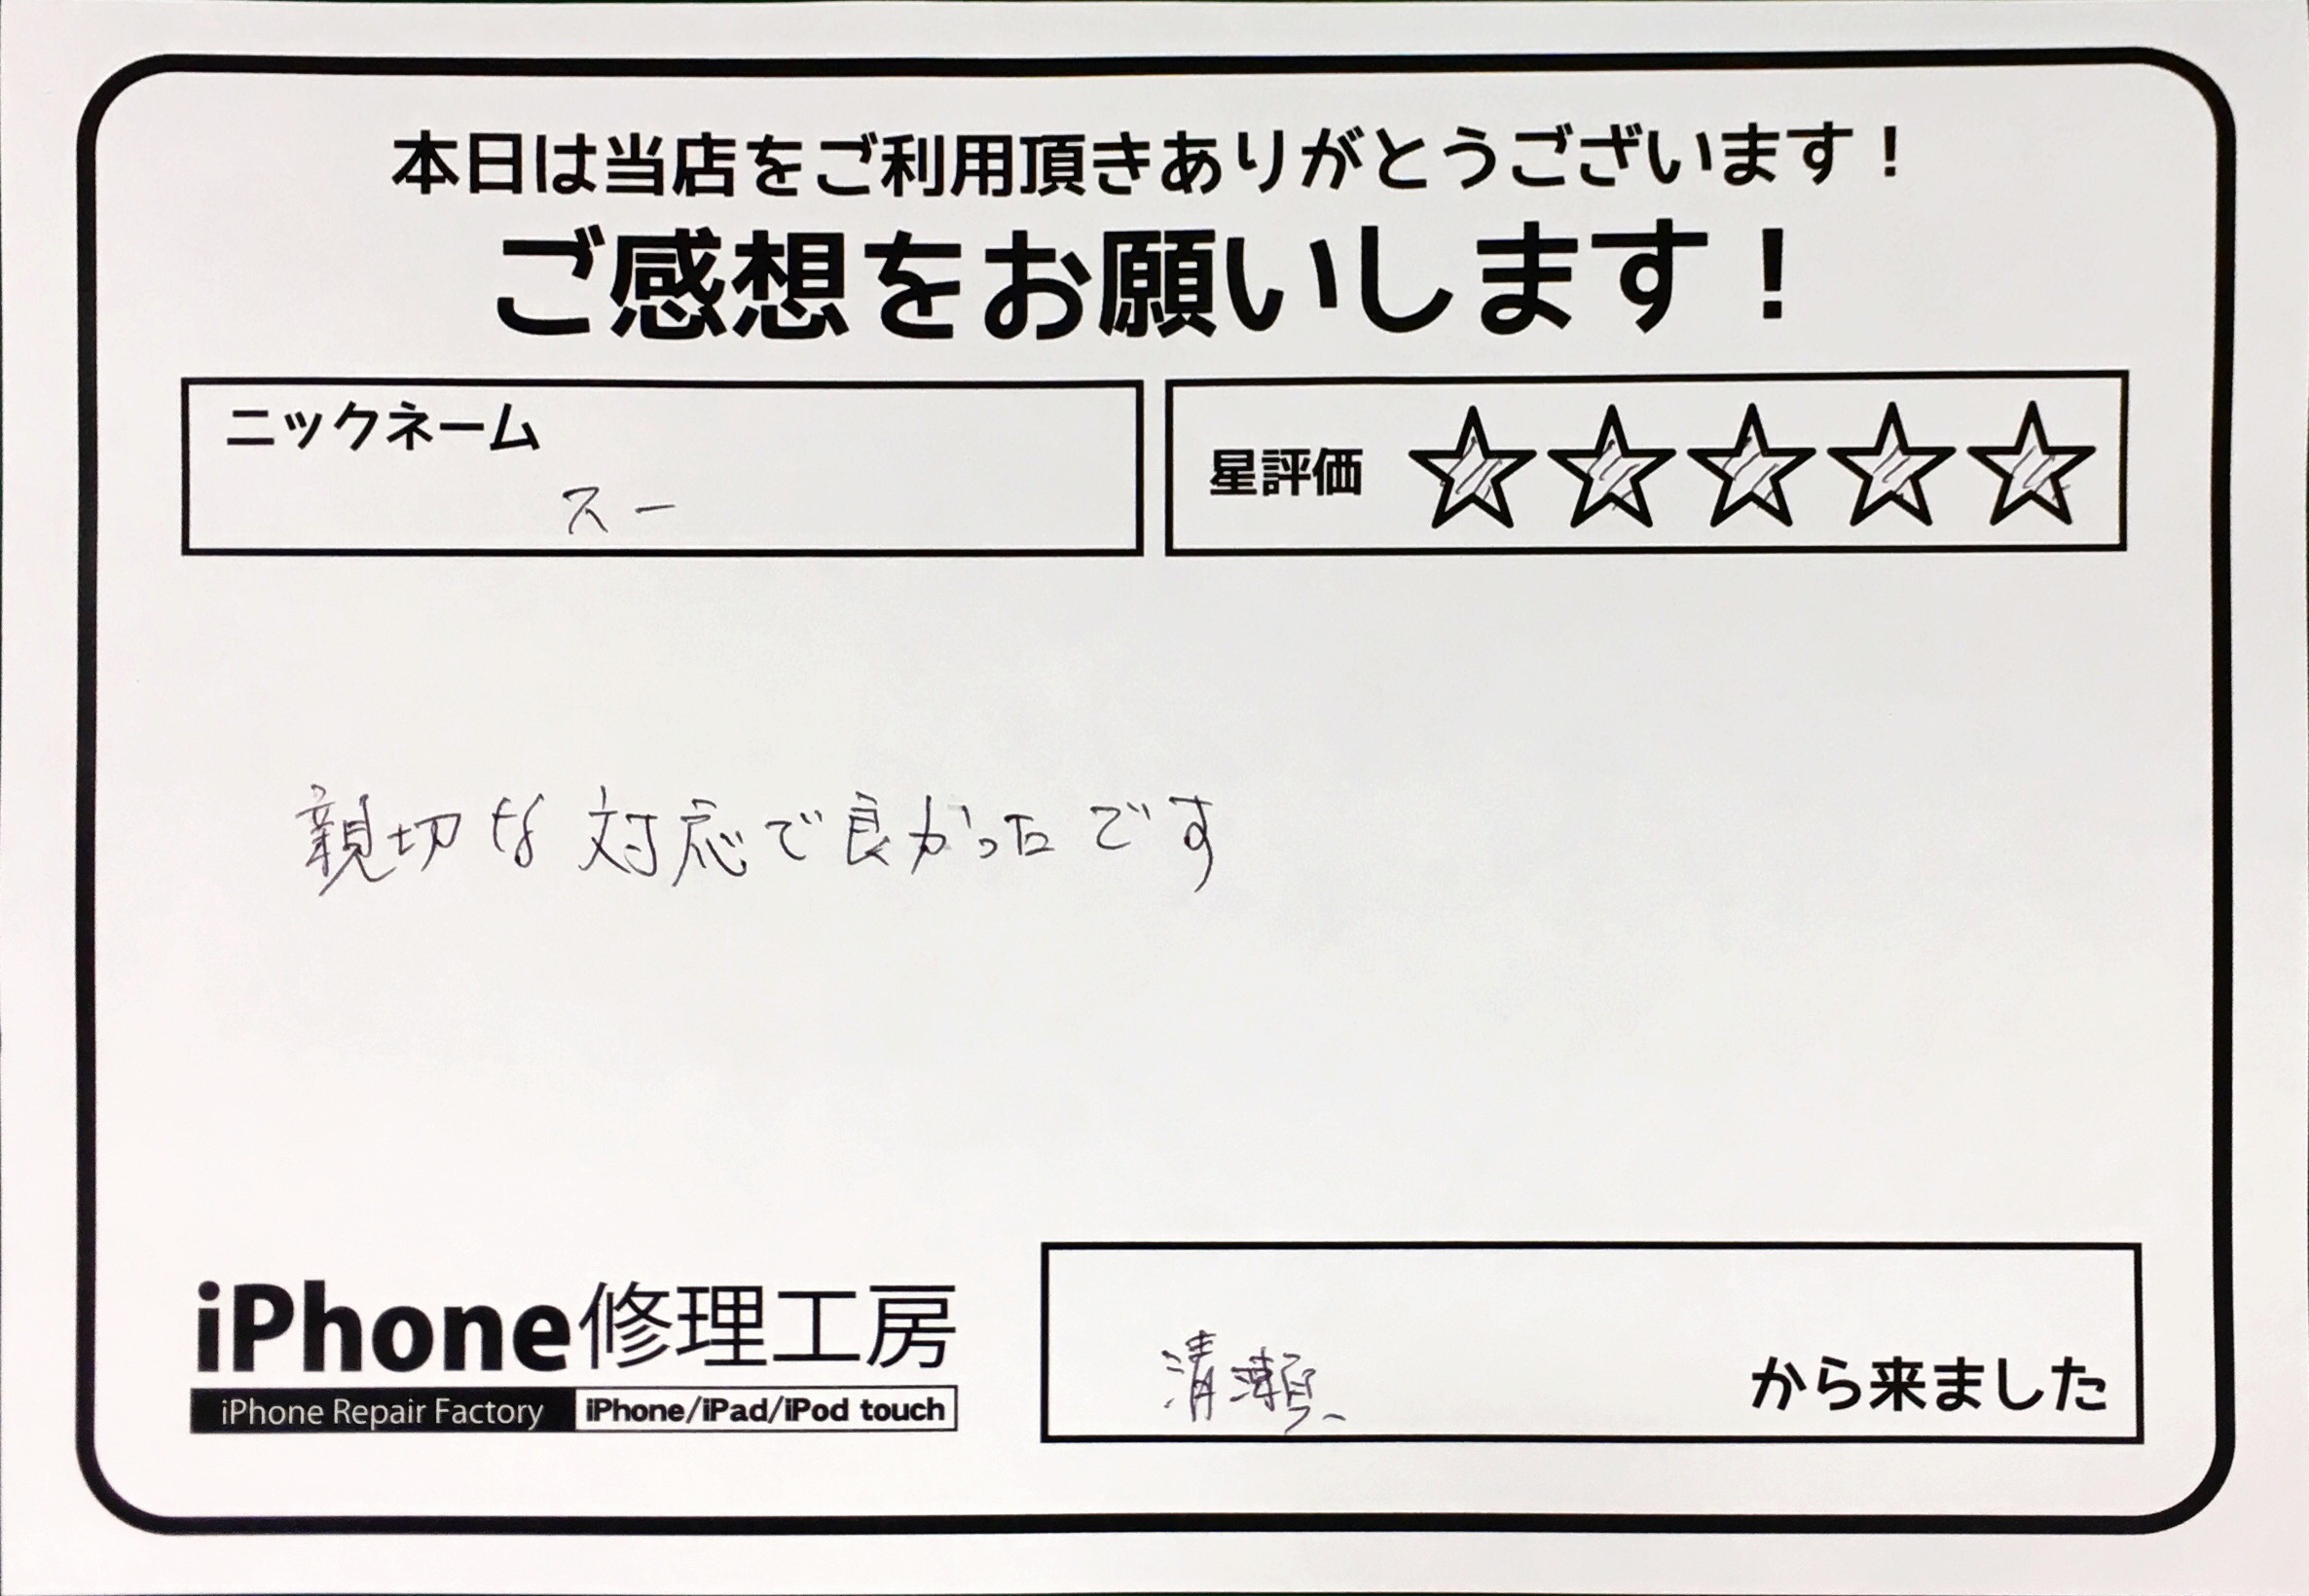 本日は当店をご利用頂きありがとうございます！
ご感想をお願いします！
ニックネーム
スー
星評価 ☆☆☆☆☆
親切な対応で良かったです
iPhone修理工房
iPhone Repair Factory iPhone/iPad/iPod touch
清瀬 から来ました